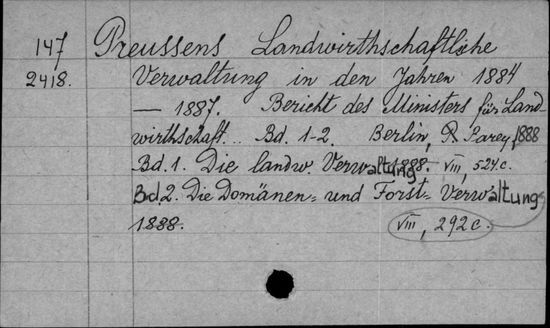 147 Preussens Landwirthschaftliche
2418. Verwaltung in den Jahren 1884
— 1887. Bericht des Ministers für Land-
wirthschaft.. Bd. 1-2. Berlin, P. Parey, 1888
Bd. 1. Die landw. Verwaltung 1888. VIII, 524 c.
Bd 2. Die Domänen= und Forst= Verwaltung
1888. VIII, 292 c.